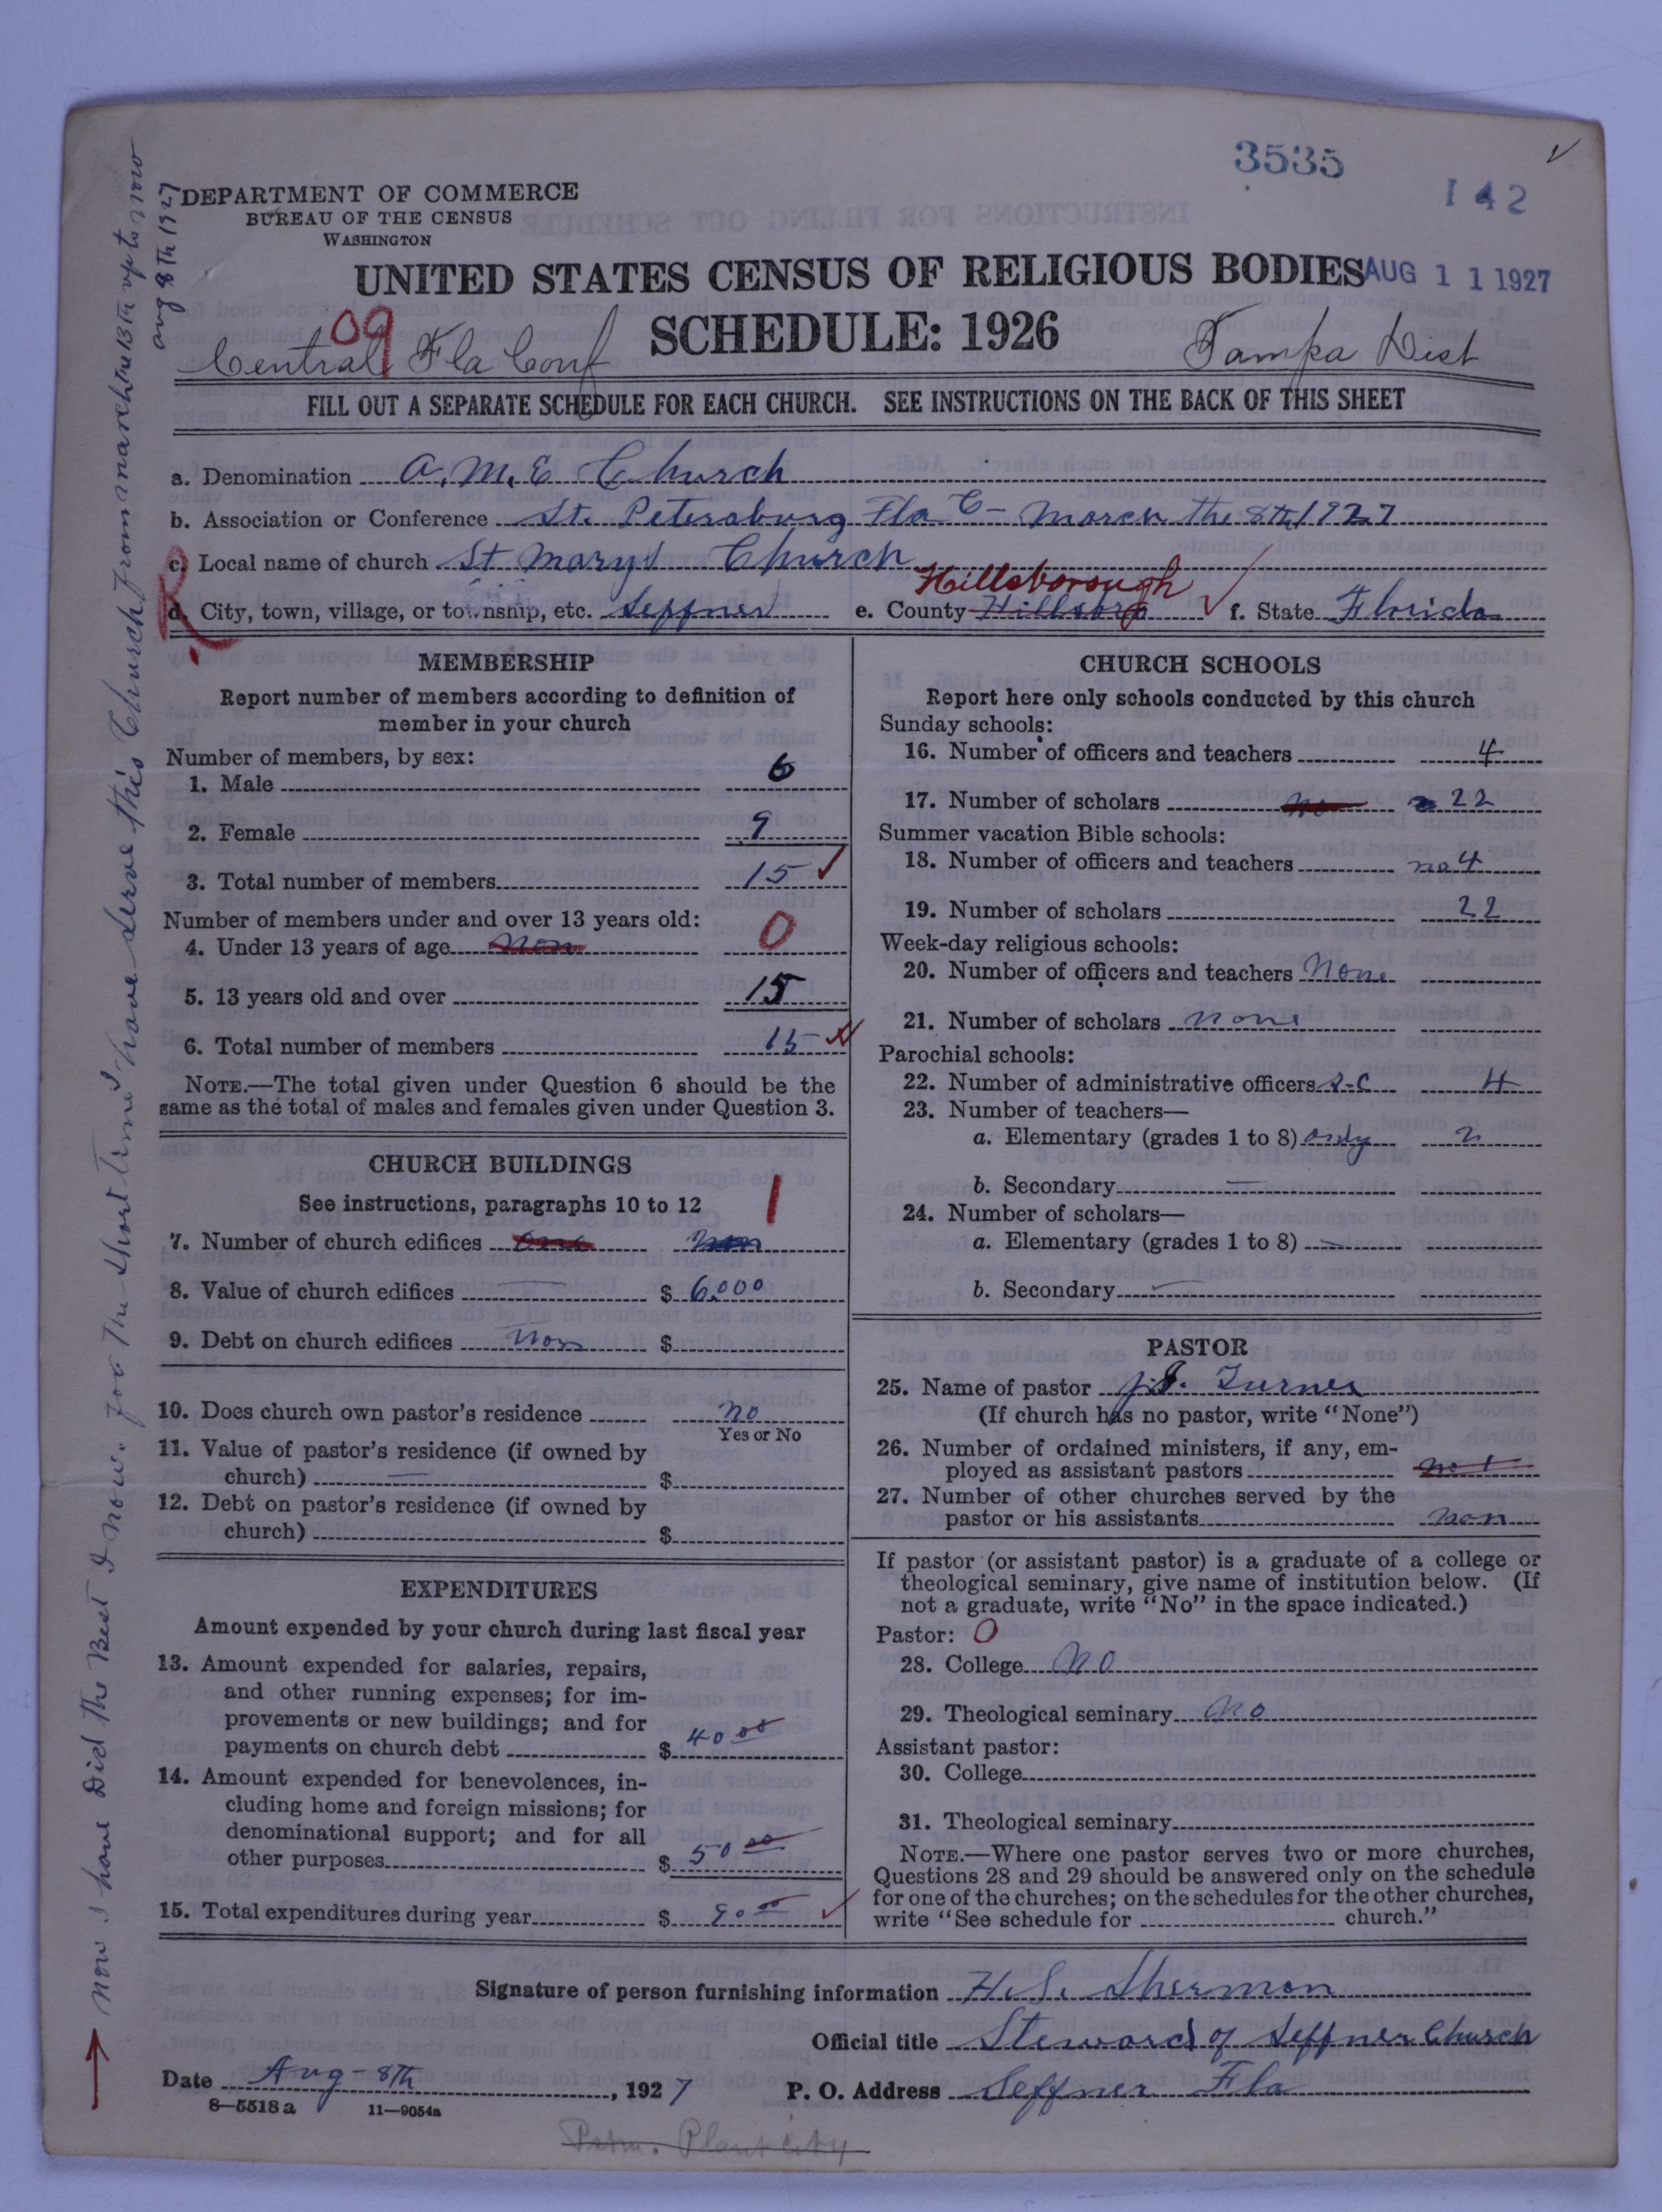 3535
142
DEPARTMENT OF COMMERCE
BUREAU OF THE CENSUS
WASHINGTON
UNITED STATES CENSUS OF RELIGIOUS BODIES AUG 11 1927
SCHEDULE: 1926
09
Central Fla Conf
Tampa Dist
FILL OUT A SEPARATE SCHEDULE FOR EACH CHURCH. SEE INSTRUCTIONS ON THE BACK OF THIS SHEET
a. Denomination A.M.E Church
b. Association or Conference St. Petersburg Fla C- March the 8th 1927
c. Local name of church St Marys Church
Hillsborough
d. City, town, village, or township, etc. Seffner e. County Hillsboro f. State Florida
R
MEMBERSHIP
Report number of members according to definition of
member in your church
Number of members, by sex:
1. Male 6
2. Female 9
3. Total number of members 15
Number of members under and over 13 years old:
4. Under 13 years of age non 0
5. 13 years old and over 15
6. Total number of members 15
NOTE.—The total given under Question 6 should be the
same as the total of males and females given under Question 3.
CHURCH BUILDINGS
See instructions, paragraphs 10 to 12 1
7. Number of church edifices one non
8. Value of church edifices $ 6000
9. Debt on church edifices non $
10. Does church own pastor's residence no
Yes or No
11. Value of pastor's residence (if owned by
church) $
12. Debt on pastor's residence (if owned by
church) $
EXPENDITURES
Amount expended by your church during last fiscal year
13. Amount expended for salaries, repairs,
and other running expenses; for im-
provements or new buildings; and for
payments on church debt $ 40 00
14. Amount expended for benevolences, in-
cluding home and foreign missions; for
denominational support; and for all
other purposes $ 50 00
15. Total expenditures during year $ 90 00
CHURCH SCHOOLS
Report here only schools conducted by this church
Sunday schools:
16. Number of officers and teachers 4
17. Number of scholars no 22
Summer vacation Bible schools:
18. Number of officers and teachers no 4
19. Number of scholars 22
Week-day religious schools:
20. Number of officers and teachers None
21. Number of scholars none
Parochial schools:
22. Number of administrative officers S-C 4
23. Number of teachers—
a. Elementary (grades 1 to 8) only 2
b. Secondary
24. Number of scholars—
a. Elementary (grades 1 to 8)
b. Secondary
PASTOR
25. Name of pastor J.J. Turner
(If church has no pastor, write "None")
26. Number of ordained ministers, if any, em-
ployed as assistant pastors not
27. Number of other churches served by the
pastor or his assistants non
If pastor (or assistant pastor) is a graduate of a college or
theological seminary, give name of institution below. (If
not a graduate, write "No" in the space indicated.)
Pastor: 0
28. College No
29. Theological seminary No
Assistant pastor:
30. College
31. Theological seminary
NOTE.—Where one pastor serves two or more churches,
Questions 28 and 29 should be answered only on the schedule
for one of the churches; on the schedules for the other churches,
write "See schedule for church."
Signature of person furnishing information H.S. Sherman
Official title Steward of Seffner Church
Date Aug-8th, 1927 P. O. Address Seffner Fla
8—5518 a 11—9054a
Pstm. Plant City
Now I have Did the Best I now. for the short time I have serve this Church from march the 13th up to now
aug 8th 1927